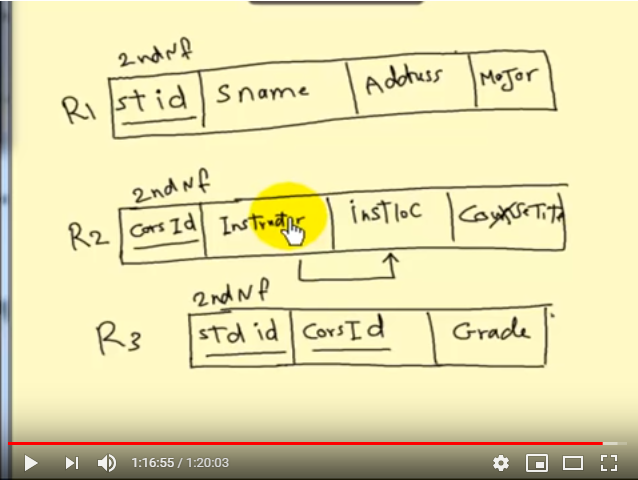 2nd Nf
R1 stid Sname Address Major
2nd Nf
R2 CorsId Instructor instloC CourseTitle
2nd Nf
R3 std id CorsId Grade
1:16:55 / 1:20:03